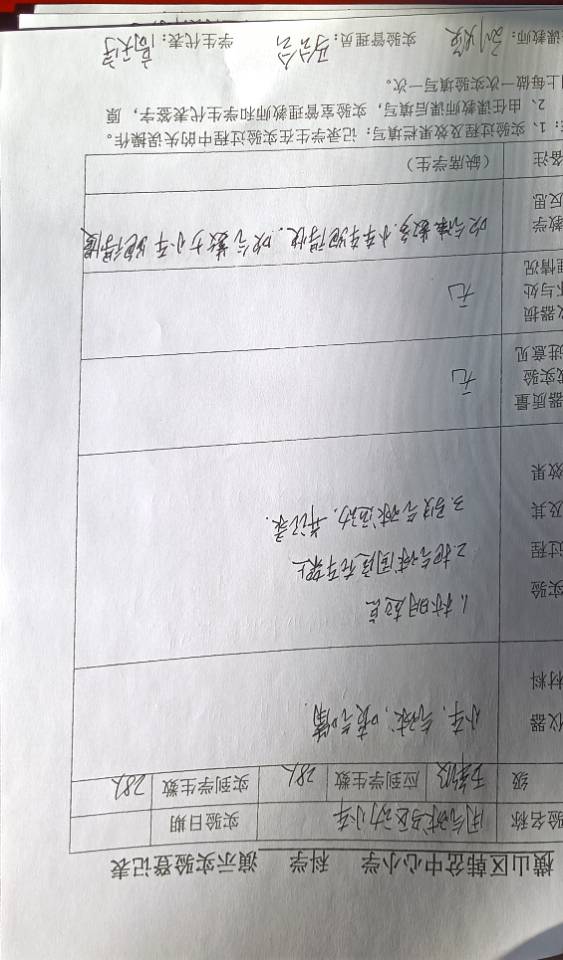 横山区韩岔中心小学 科学 演示实验登记表
验名称 用气球驱动小车 实验日期
级 五年级 应到学生数 28人 实到学生数 28人
仪器
材料
小车、气球、喷气嘴
实验
过程
及其
效果
1.标明起点
2.把气球固定在车架上
3.
气球运动.并记录.
器质量
或实验
进意见
无
仪器损
坏与处
理情况
无
教学
反思
吹气球数多.小车跑得快.吹气数少小车跑得慢
备注 （缺席学生）
：1、实验过程及效果栏填写：记录学生在实验过程中的失误操作。
2、由任课教师课后填写，实验室管理教师和学生代表签字，原
则上每做一次实验填写一次。
课教师： 实验管理员： 学生代表：